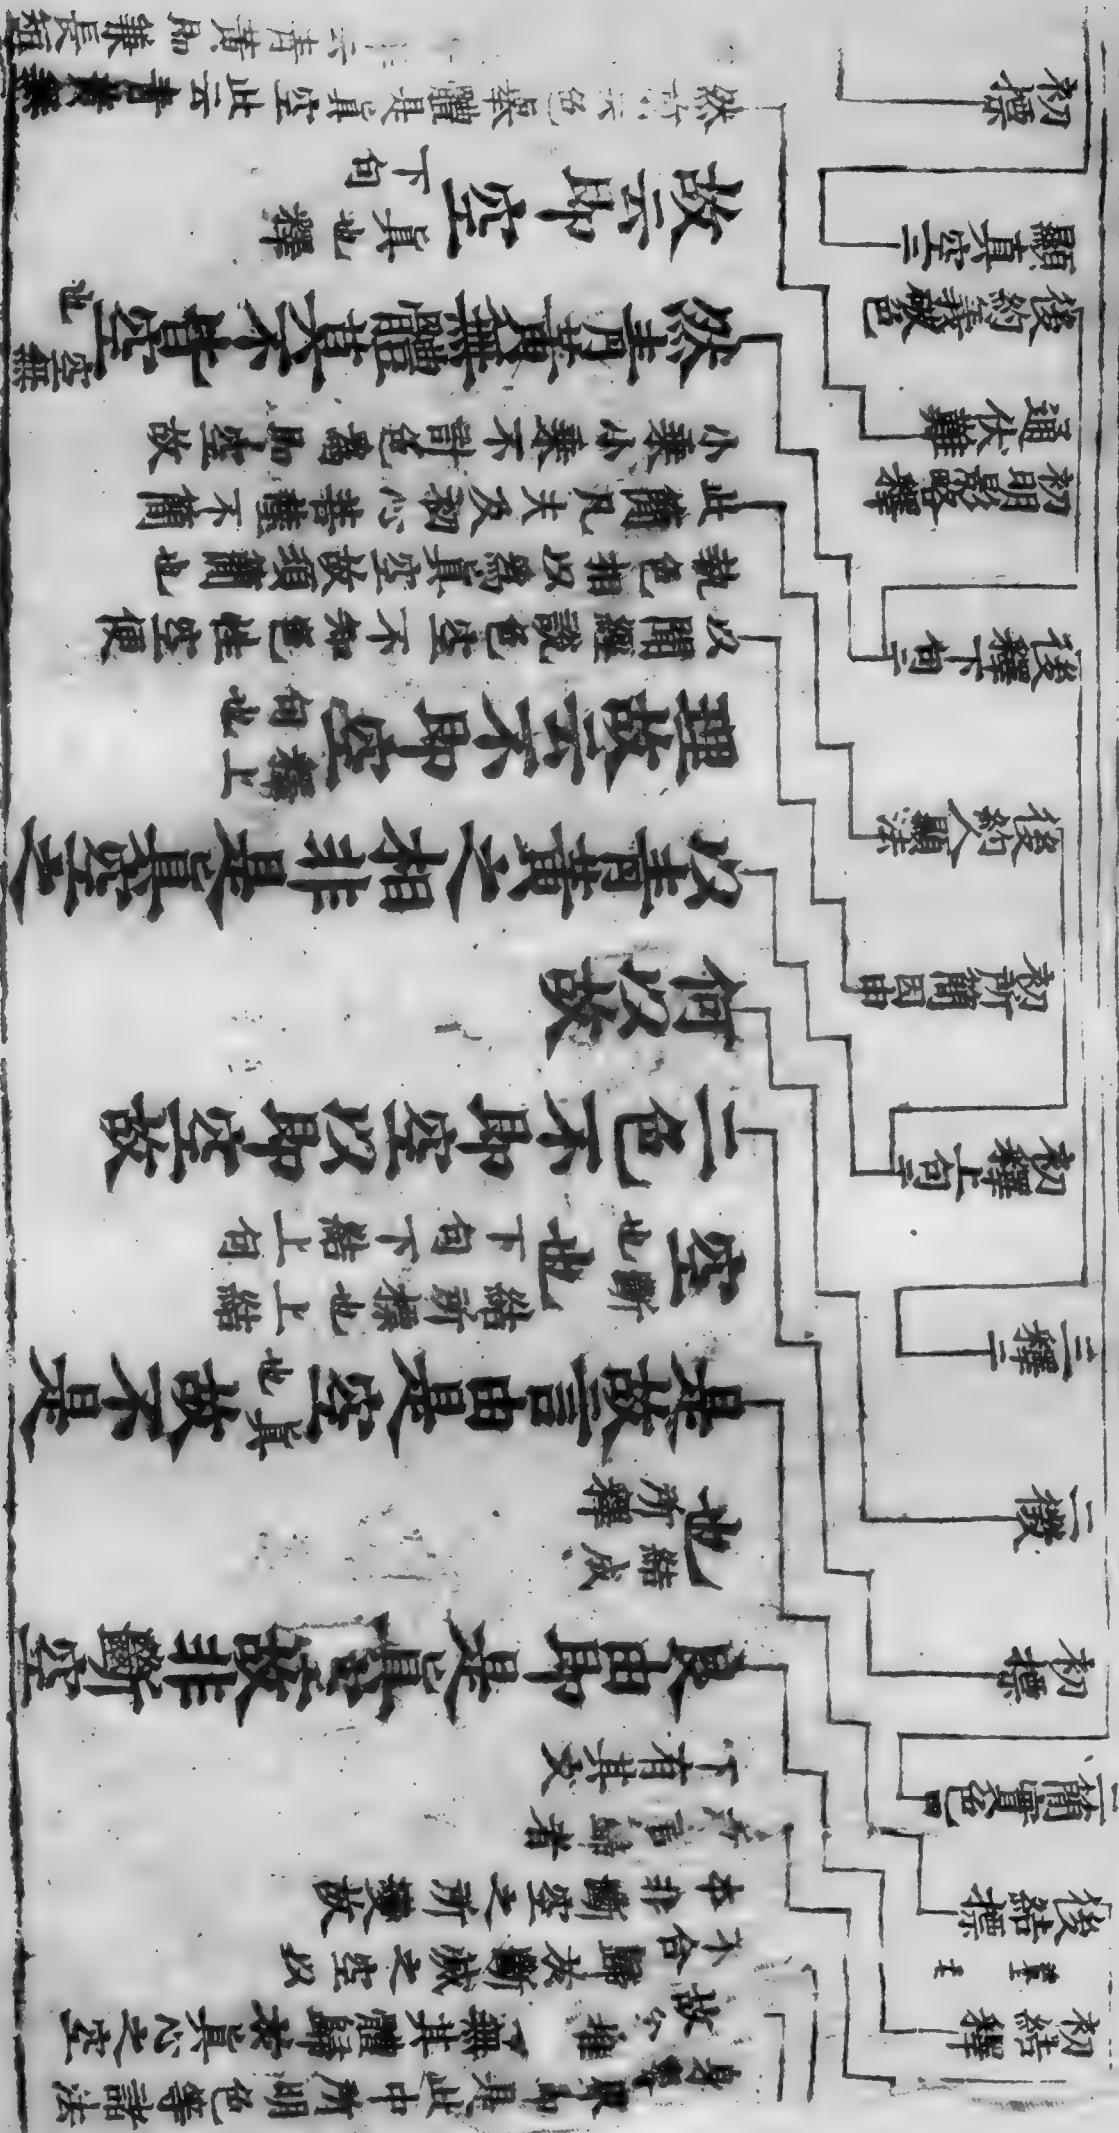 初結釋
後結標
二簡實色四
初標
二徵
三釋二
初釋上句二
初所簡因由
後約人顯法
後釋下句二
初明影略釋
通伏難
後約義破色
顯真空二
初標
界即是此中所明色等諸法
故今推
無其體歸於真心之空
不合歸於斷滅之空以
本非斷空之所變故
言歸者
下有其文
良由即是真空故非斷空
也結成所釋
是故言由是空真也故不是
空斷也也結所標也上結下句下結上句
二色不即空以即空故
何以故
以青黃之相非是真空之
理故云不即空釋上句也
以聞經說色空不知色性空便
執色相以為真空故須簡也
此簡凡夫及初心菩薩不簡
小乘小乘不對色為即空故
然青黃無體莫不皆空無空也
故云即空真也釋下句
色舉體是真空此云青黃無
云青黃即兼長短